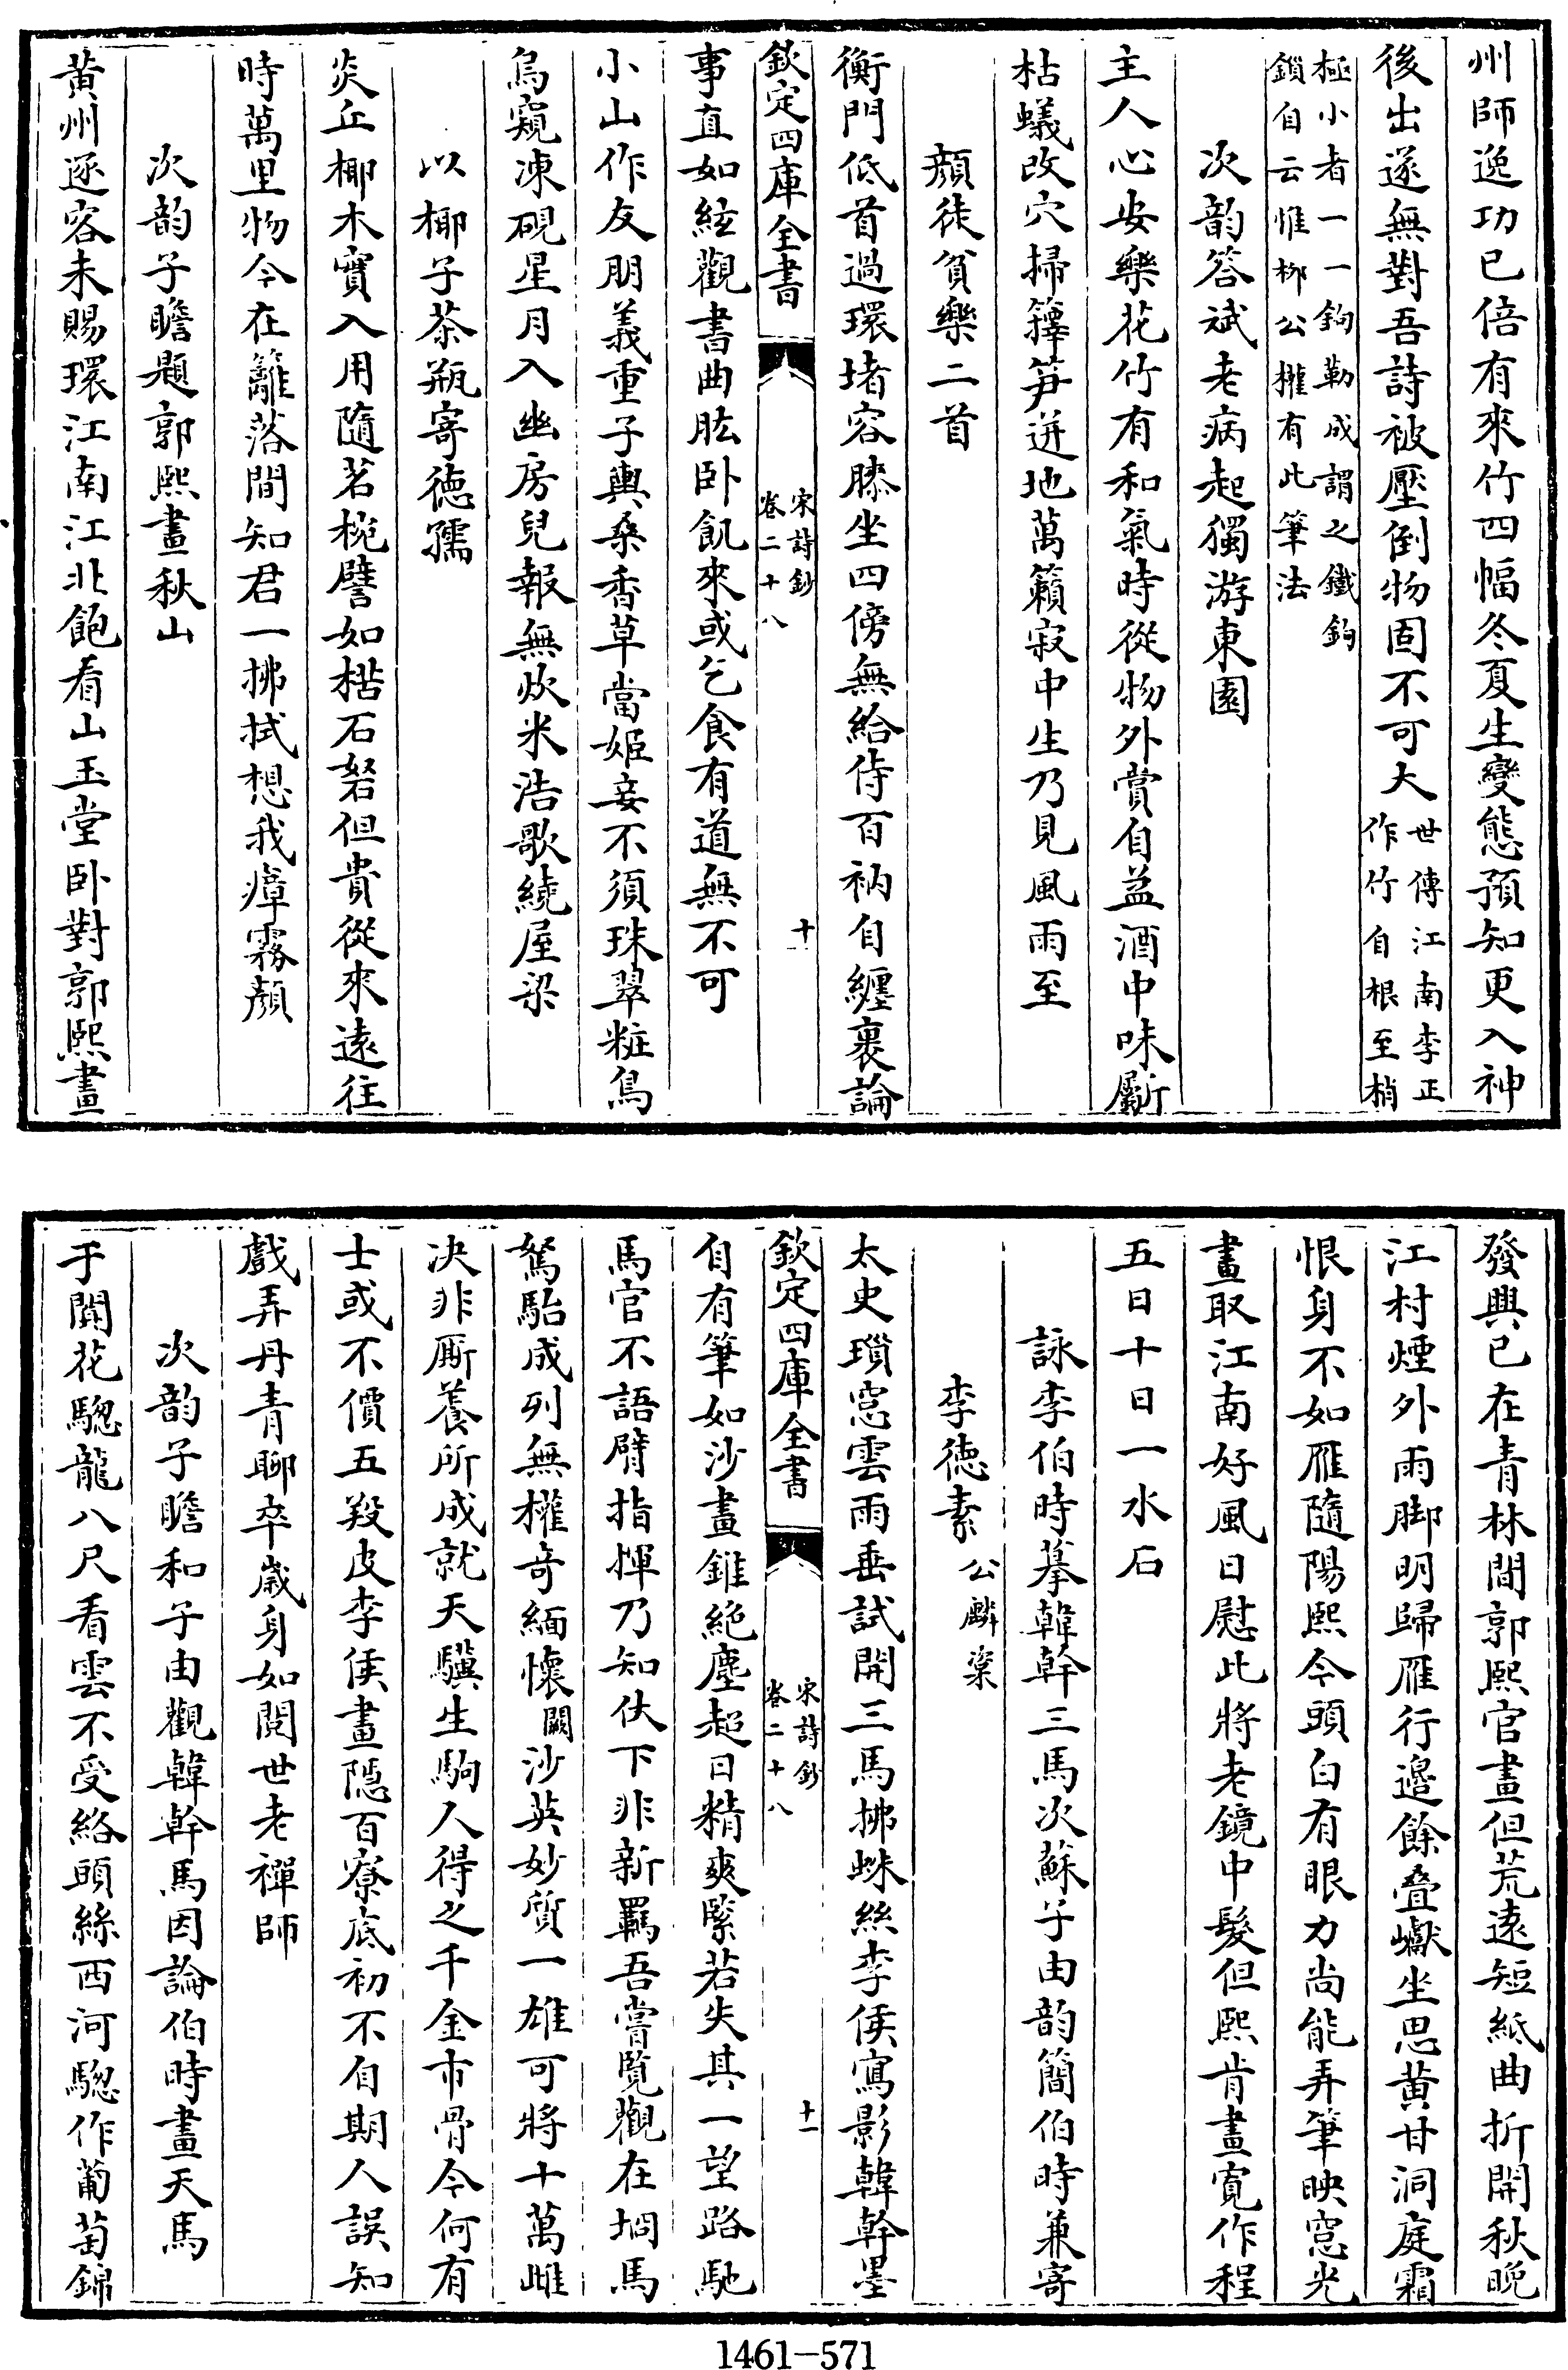 州師逸功已倍有來竹四幅冬夏生變態預知更入神
後出遂無對吾詩被壓倒物固不可大世傳江南李正
作竹自根至梢
極小者一一鉤勒成謂之鐵鉤
鎖自云惟柳公權有此筆法
次韵答斌老病起獨游東園
主人心安樂花竹有和氣時從物外賞自益酒中味斸
枯蟻改穴掃籜笋迸地萬籟寂中生乃見風雨至
顔徒貧樂二首
衡門低首過環堵容膝坐四傍無給侍百衲自纏裹論
欽定四庫全書
宋詩鈔
卷二十八
十
事直如絃觀書曲肱卧飢來或乞食有道無不可
小山作友朋義重子輿桑香草當姬妾不須珠翠粧鳥
烏窺凍硯星月入幽房兒報無炊米浩歌繞屋梁
以椰子茶瓶寄德孺
炎丘椰木實入用隨茗椀譬如楛石砮但貴從來遠往
時萬里物今在籬落間知君一拂拭想我瘴霧顔
次韵子瞻題郭熙畫秋山
黄州逐客未賜環江南江北飽看山玉堂卧對郭熙畫
發興已在青林間郭熙官畫但荒遠短紙曲折開秋晚
江村煙外雨脚明歸雁行邉餘疊巘坐思黄甘洞庭霜
恨身不如雁隨陽熙今頭白有眼力尚能弄筆映窓光
畫取江南好風日慰此將老鏡中髮但熙肯畫寛作程
五日十日一水石
詠李伯時摹韓幹三馬次蘇子由韵簡伯時兼寄
李德素公麟㮚
太史瑣窓雲雨垂試開三馬拂蛛絲李侯寫影韓幹墨
欽定四庫全書
宋詩鈔
卷二十八
十一
自有筆如沙畫錐絶塵超日精爽緊若失其一望路馳
馬官不語臂指揮乃知仗下非新羈吾嘗覽觀在坰馬
駑駘成列無權奇緬懷闕沙英妙質一雄可將十萬雌
决非厮養所成就天驥生駒人得之千金市骨今何有
士或不價五羖皮李侯畫隠百寮底初不自期人誤知
戲弄丹青聊卒歲身如閲世老禪師
次韵子瞻和子由觀韓幹馬因論伯時畫天馬
于闐花驄龍八尺看雲不受絡頭絲西河驄作葡萄錦
1461-571